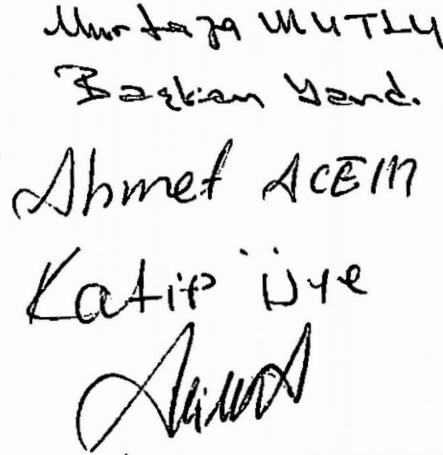 Murtaza MUTLU
Başkan Yard.
Ahmet ACEM
Katip Üye